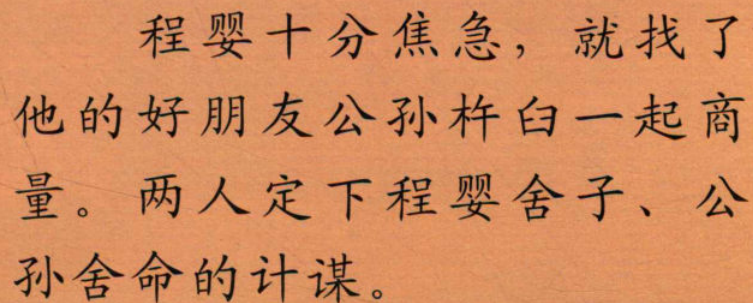 程婴十分焦急，就找了
他的好朋友公孙杵臼一起商
量。两人定下程婴舍子、公
孙舍命的计谋。